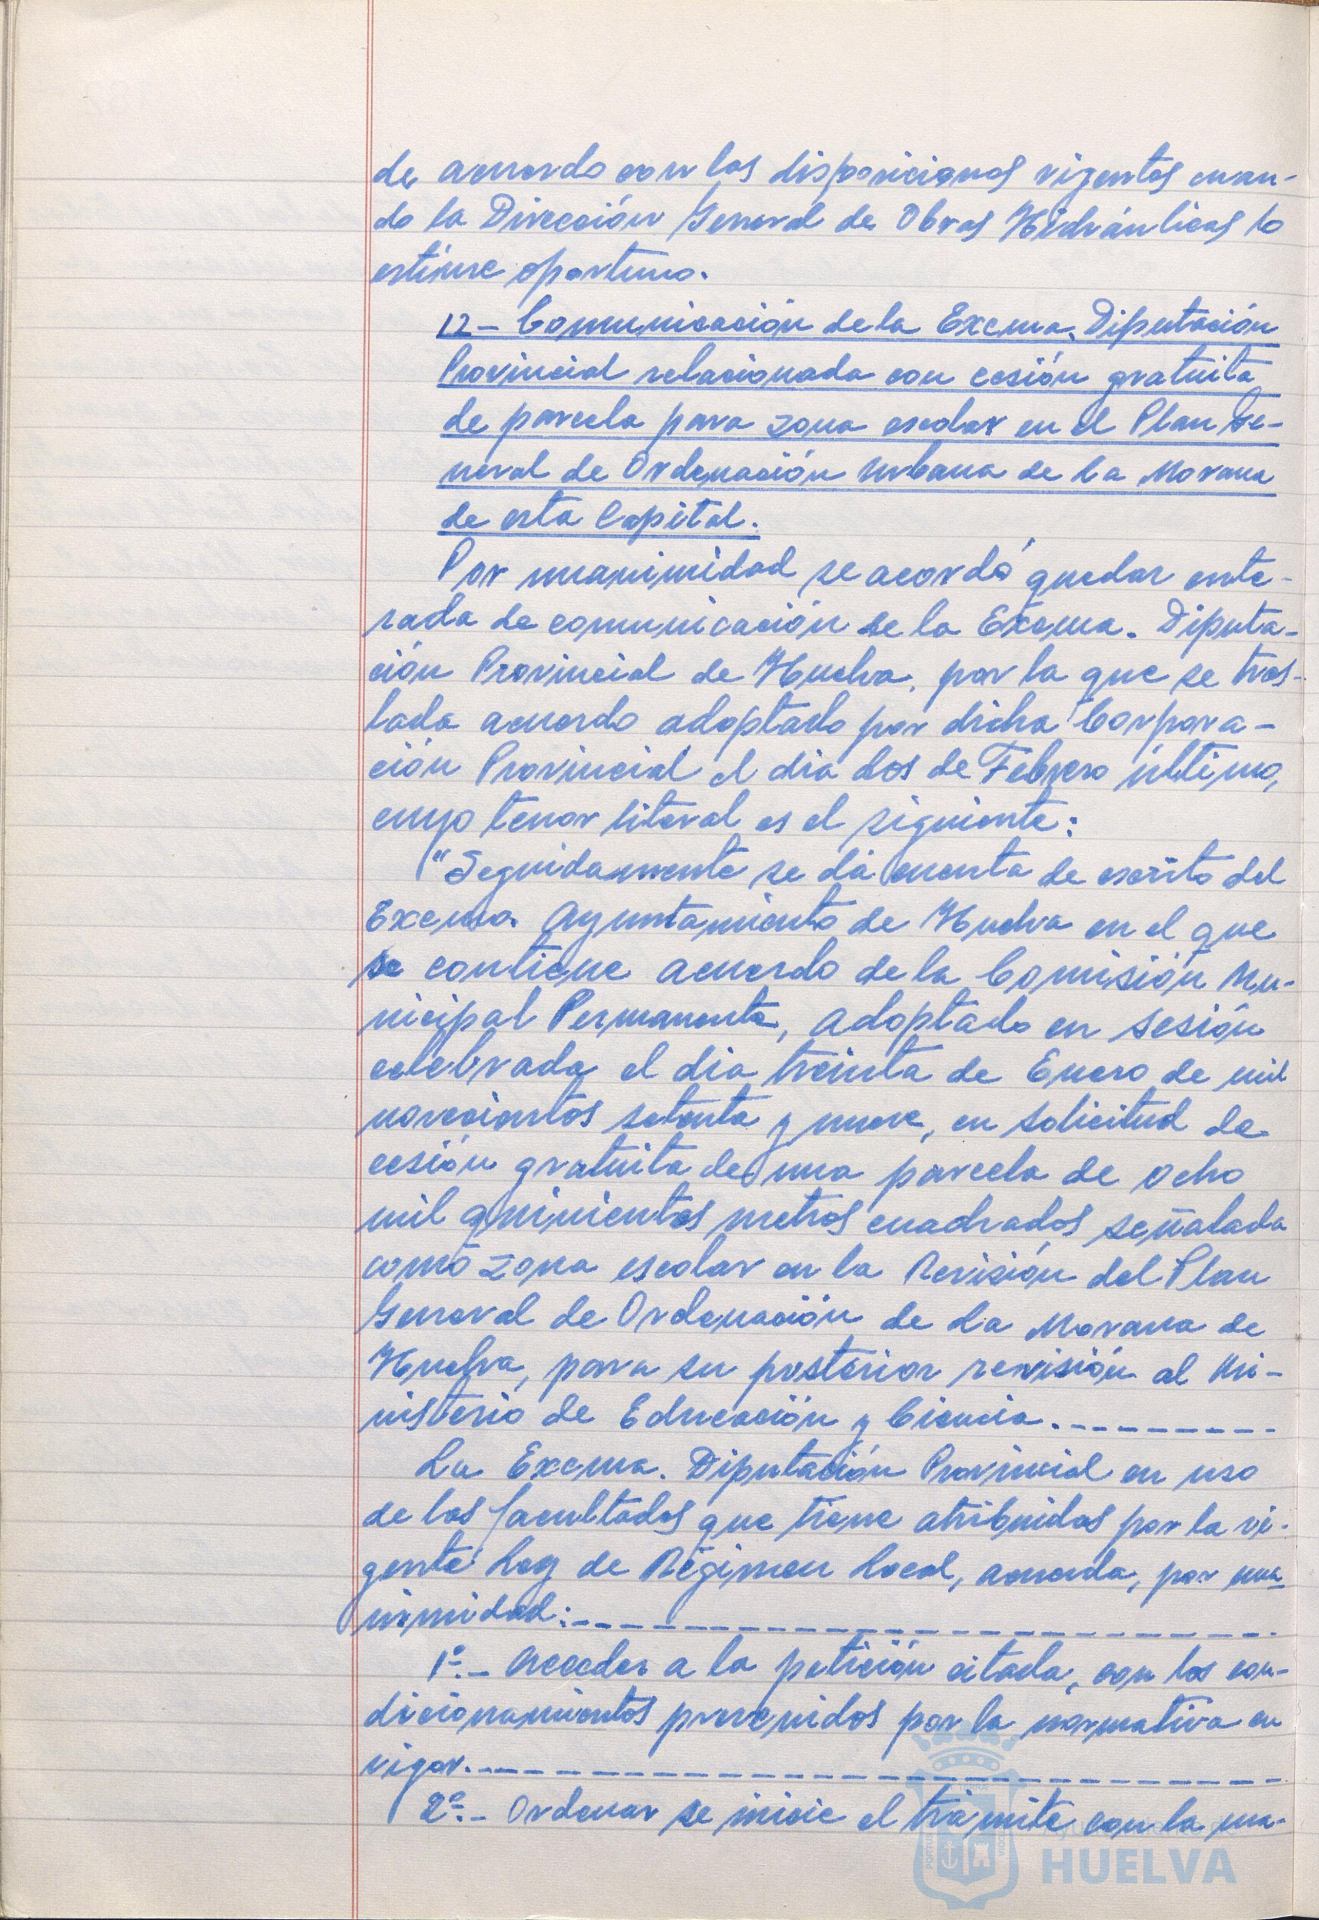 de acuerdo con las disposiciones vigentes cuan-
do la Dirección General de Obras Hidráulicas lo
estime oportuno.
12- Comunicación de la Excma. Diputación
Provincial relacionada con cesión gratuita
de parcela para zona escolar en el Plan Ge-
neral de Ordenación Urbana de La Morana
de esta Capital.
Por unanimidad se acordó quedar ente-
rada de comunicación de la Excma. Diputa-
ción Provincial de Huelva, por la que se tras-
lada acuerdo adoptado por dicha Corpora-
ción Provincial el dia dos de Febrero último,
cuyo tenor literal es el siguiente:
"Seguidamente se dá cuenta de escrito del
Excmo. Ayuntamiento de Huelva en el que
se contiene acuerdo de la Comisión Mu-
nicipal Permanente, adoptado en sesión
celebrada el dia treinta de Enero de mil
novecientos setenta y nueve, en solicitud de
cesión gratuita de una parcela de ocho
mil quinientos metros cuadrados señalada
como zona escolar en la Revisión del Plan
General de Ordenación de La Morana de
Huelva, para su posterior revisión al Mi-
nisterio de Educación y Ciencia.---------
La Excma. Diputación Provincial en uso
de las facultades que tiene atribuidas por la vi-
gente Ley de Régimen Local, acuerda, por una-
nimidad:-----------------------
1º.- Acceder a la petición citada, con los con-
dicionamientos prevenidos por la normativa en
vigor.---------------------------
2º.- Ordenar se inicie el trámite con la ma-
HUELVA